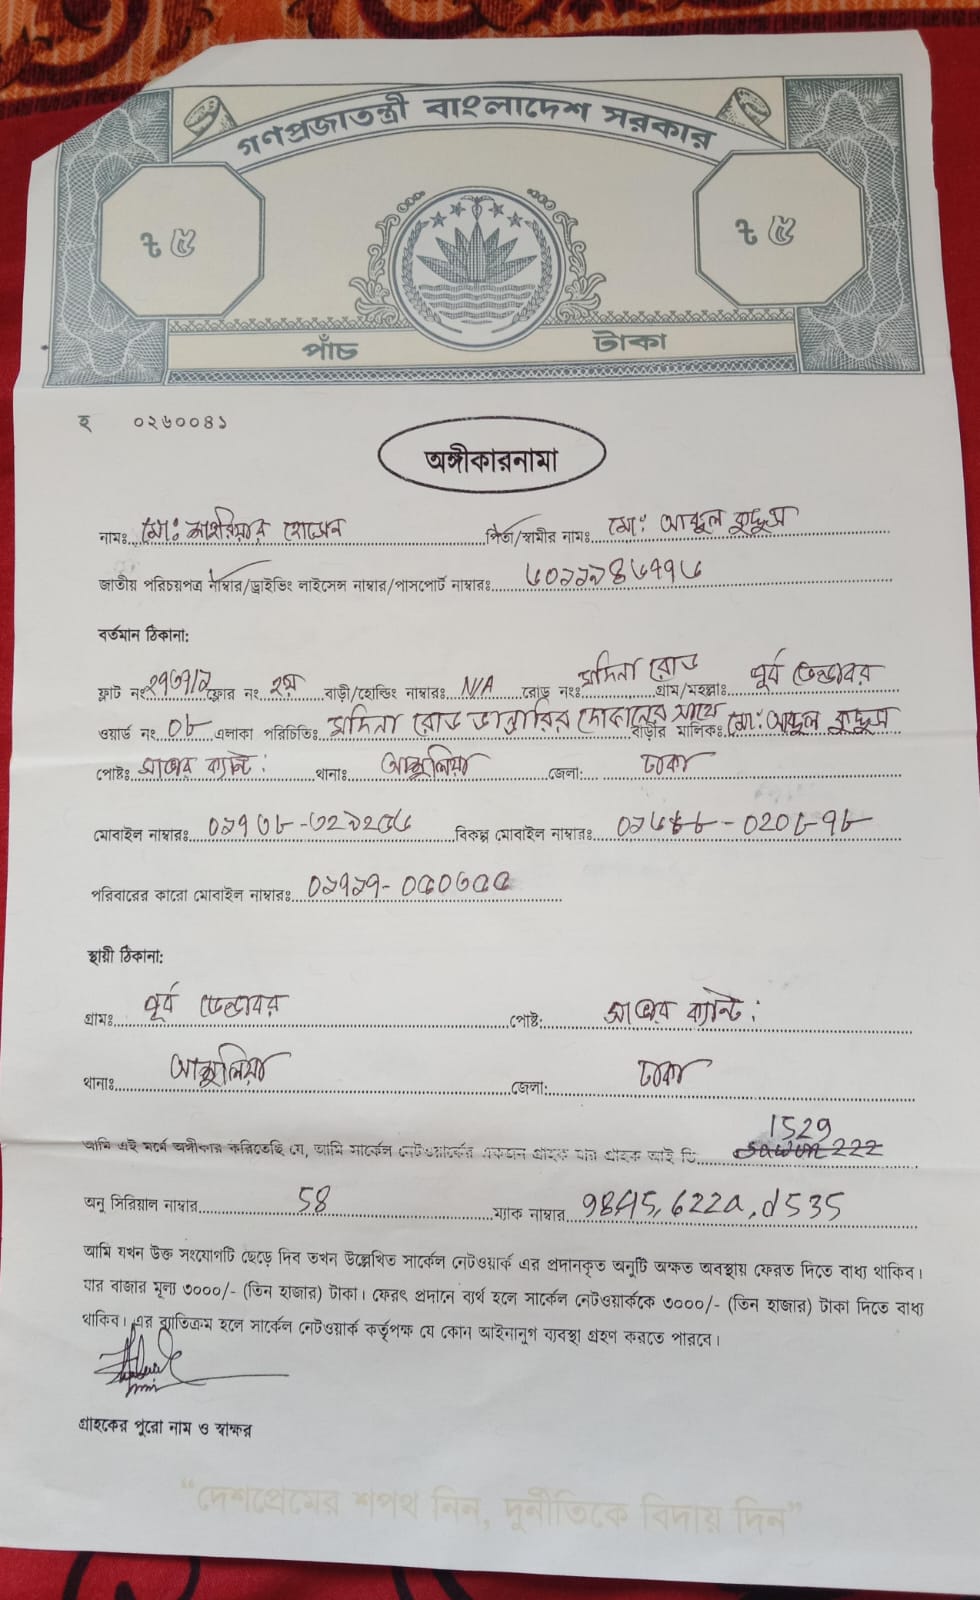 গণপ্রজাতন্ত্রী বাংলাদেশ সরকার
৳ ৫ ৳ ৫
পাঁচ টাকা
হ ০২৬০০৪১
অঙ্গীকারনামা
নামঃ মোঃ শাহরিয়ার হোসেন পিতা/স্বামীর নামঃ মোঃ আব্দুল কুদ্দুস
জাতীয় পরিচয়পত্র নাম্বার/ড্রাইভিং লাইসেন্স নাম্বার/পাসপোর্ট নাম্বারঃ
বর্তমান ঠিকানা:
ফ্লাট নং ফ্লোর নং. ২য় বাড়ী/হোল্ডিং নাম্বারঃ N/A রোড নংঃ মদিনা রোড গ্রাম/মহল্লাঃ পূর্ব ডেন্ডাবর
ওয়ার্ড নং. ০৮ এলাকা পরিচিতিঃ মদিনা রোড ডাক্তারির দোকানের সাথে বাড়ীর মালিকঃ মো: আব্দুল কুদ্দুস
পোষ্টঃ সাভার ক্যান্ট: থানাঃ আশুলিয়া জেলা: ঢাকা
মোবাইল নাম্বারঃ বিকল্প মোবাইল নাম্বারঃ
পরিবারের কারো মোবাইল নাম্বারঃ ০১৭১৭-০৫০৩৫৫
স্থায়ী ঠিকানা:
গ্রামঃ পূর্ব ডেন্ডাবর পোষ্ট: সাভার ক্যান্ট:
থানাঃ আশুলিয়া জেলা: ঢাকা
1529
আমি এই মর্মে অঙ্গীকার করিতেছি যে, আমি সার্কেল নেটওয়ার্কের একজন গ্রাহক যার গ্রাহক আই ডি
অনু সিরিয়াল নাম্বার 58 ম্যাক নাম্বার 622a, d535
আমি যখন উক্ত সংযোগটি ছেড়ে দিব তখন উল্লেখিত সার্কেল নেটওয়ার্ক এর প্রদানকৃত অনুটি অক্ষত অবস্থায় ফেরত দিতে বাধ্য থাকিব।
যার বাজার মূল্য ৩০০০/- (তিন হাজার) টাকা। ফেরৎ প্রদানে ব্যর্থ হলে সার্কেল নেটওয়ার্ককে ৩০০০/- (তিন হাজার) টাকা দিতে বাধ্য
থাকিব। এর ব্যতিক্রম হলে সার্কেল নেটওয়ার্ক কর্তৃপক্ষ যে কোন আইনানুগ ব্যবস্থা গ্রহণ করতে পারবে।
গ্রাহকের পুরো নাম ও স্বাক্ষর
“দেশপ্রেমের শপথ নিন, দুর্নীতিকে বিদায় দিন”